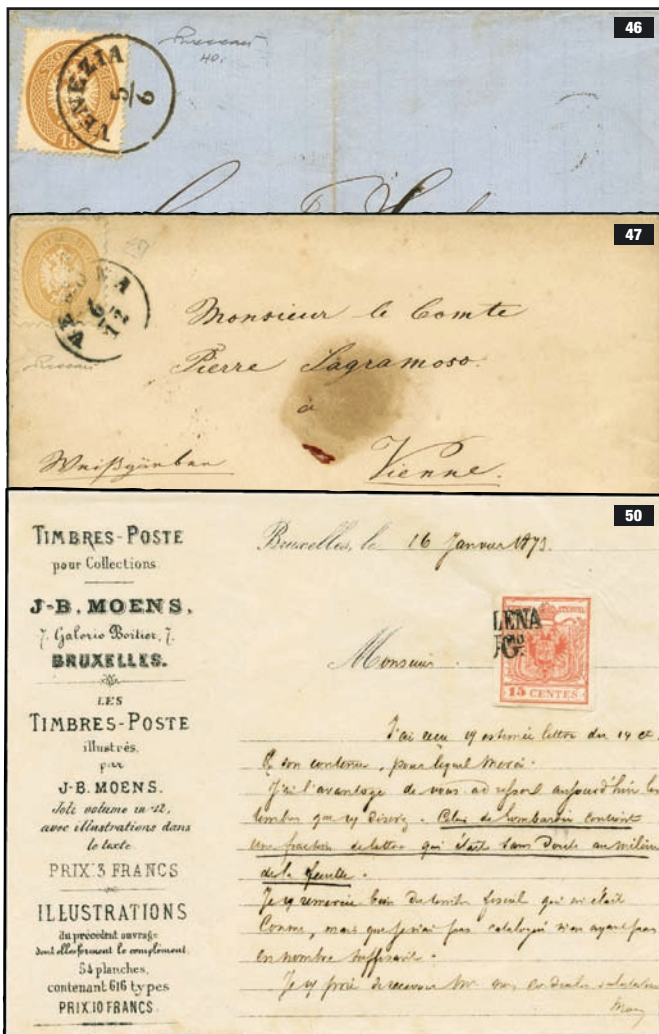 46
VENEZIA
5/6
15
40.
47
VERONA
6
12
Monsieur le Comte
Pierre Lagramoso.
à
Weißgärber
Vienne.
50
TIMBRES-POSTE
pour Collections
J-B. MOENS,
7. Galerie Bortier, 7.
BRUXELLES.
LES
TIMBRES-POSTE
illustrés,
par
J-B. MOENS.
Joli volume in-12,
avec illustrations dans
le texte
PRIX: 3 FRANCS
ILLUSTRATIONS
du précédent ouvrage
dont elles forment le complément.
54 planches,
contenant 616 types
PRIX: 10 FRANCS.
Bruxelles, le 16 Janvier 1873.
LENA
15 CENTES
Monsieur
J'ai reçu estimée lettre du 14 ct.
& son contenu, pour lequel merci.
J'ai l'avantage de vous adresser aujourd'hui les
timbres que . Celui de Lombardie contient
une fraction de lettre qui était sans doute au milieu
de la feuille.
Je remercie bien du timbre fiscal qui m'était
Connu, mais que je n'ai pas catalogué n'en ayant pas
en nombre suffisant.
Je prie de recevoir mes cordiales salutations
Moens